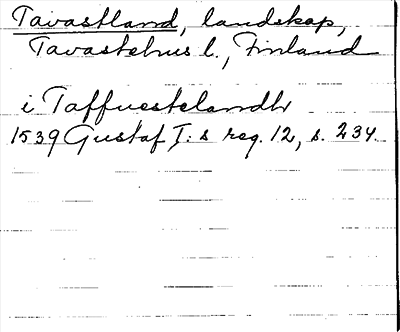 Tavastland, landskap,
Tavastehus l., Finland
i Taffuestelandh
1539 Gustaf I:s reg. 12, s. 234.